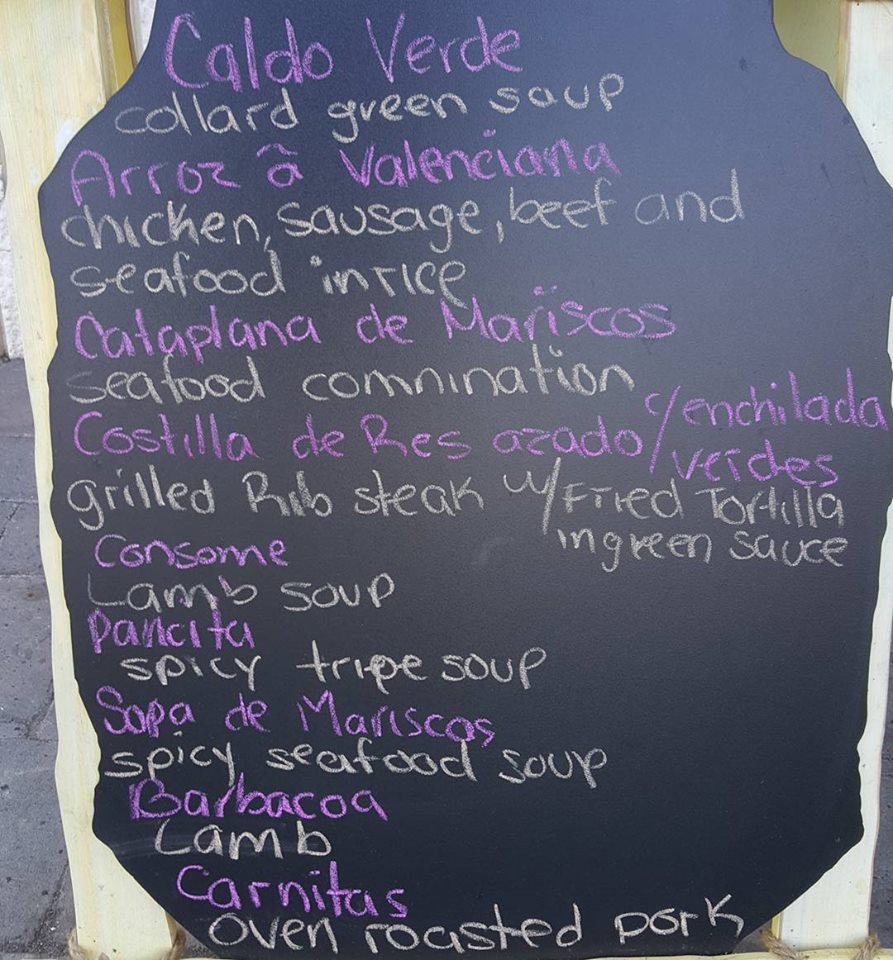 Caldo Verde
collard green soup
Arroz â Valenciana
chicken, sausage, beef and
seafood in rice
Cataplana de Mariscos
seafood comnination
Costilla de Res azado c/enchilada
verdes
grilled Rib steak w/Fried Tortilla
in green sauce
Consome
Lamb soup
Pancita
spicy tripe soup
Sopa de Mariscos
spicy seafood soup
Barbacoa
Lamb
Carnitas
oven roasted pork